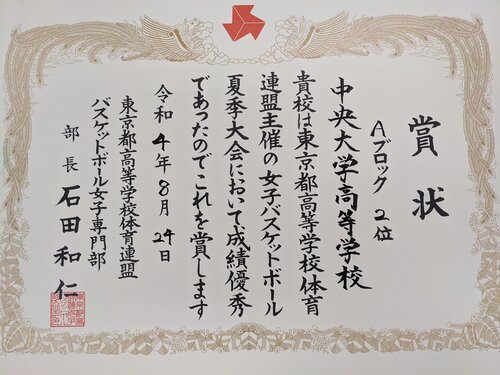 賞状
Aブロック 2位
中央大学高等学校
貴校は東京都高等学校体育
連盟主催の女子バスケットボール
夏季大会において成績優秀
であったのでこれを賞します
令和4年8月24日
東京都高等学校体育連盟
バスケットボール女子専門部
部長 石田和仁